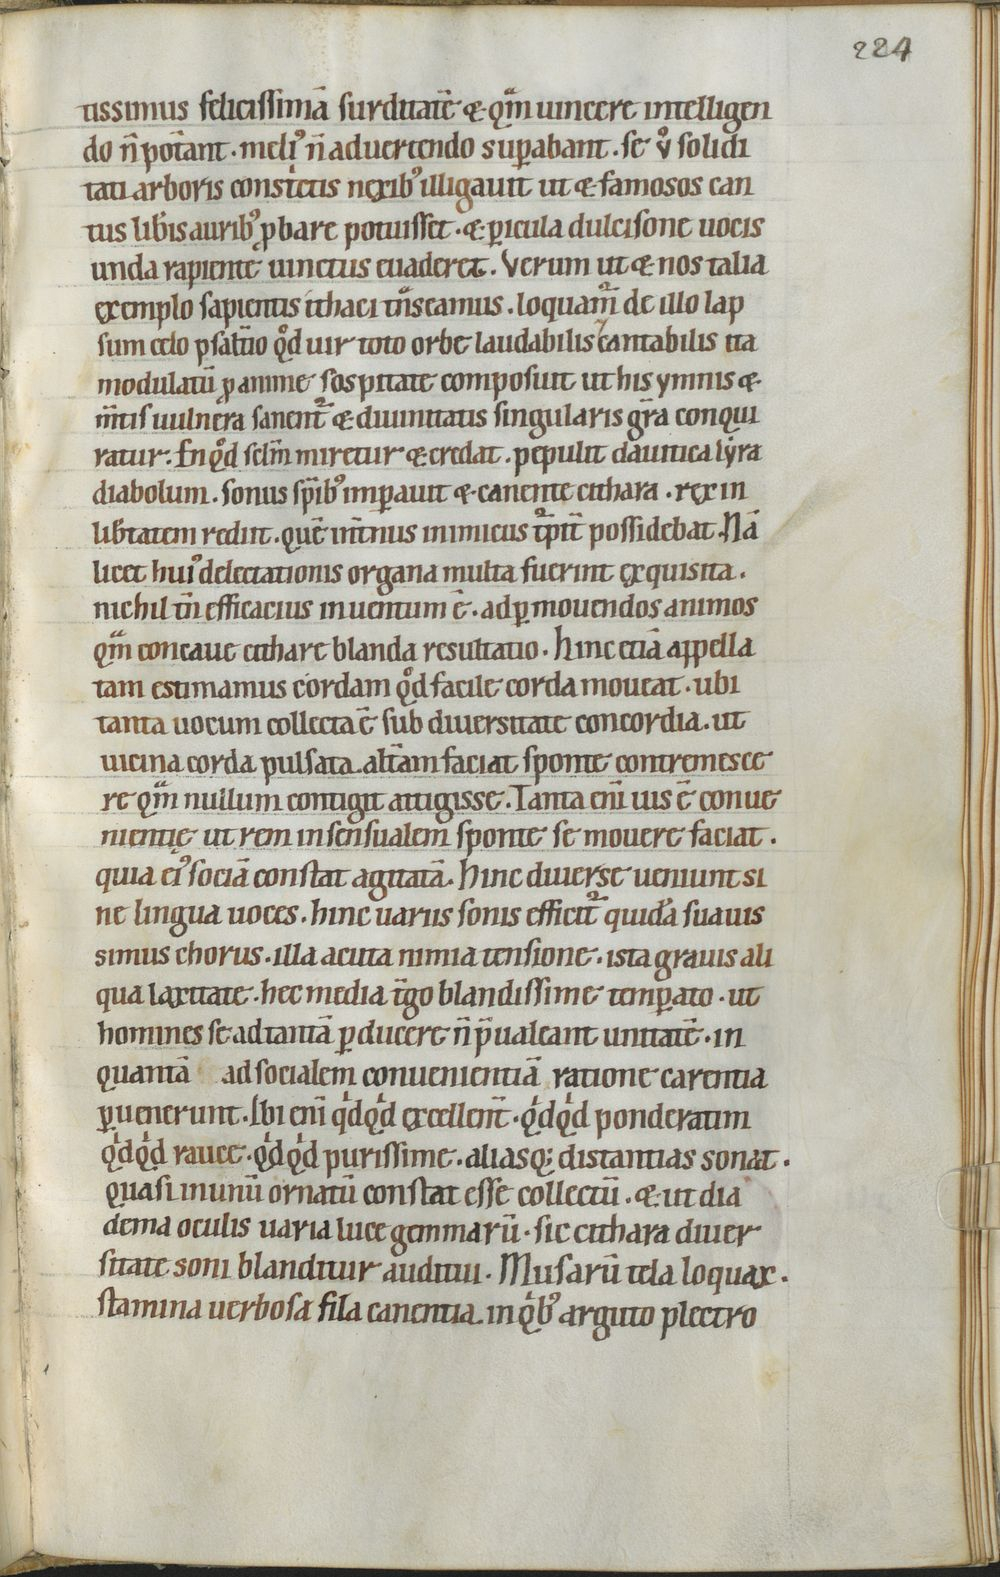 224
tissimus felicissimā surditatē & qm̄ uincere intelligen
do n̄ poterant. meliꝰ n̄ aduertendo suꝑabant. se ů solidi
tati arboris constͥctis nexibꝰ illigauit ut & famosos can
tus libris auribꝰ ꝓbare potuisset. & ꝑicula dulcisone uocis
unda rapiente uinctus euaderet. Verum ut & nos talia
exemplo sapientis ithaci tͣnseamus. loquamᷣ de illo lap
sum celo psalt̄io qͦd uir toto orbe laudabilis cantabilis ita
modulatū ꝓ anime sospitate composuit ut his ymnis &
m̄tis uulnera sanentᷣ & diuinitatis singularis gr̄a conqui
ratur. En qͦd sc̄lm miretur & credat. pepulit dauitica lyra
diabolum. sonus sp̄ibꝰ imꝑauit & canente cithara. rex in
lib̄tatem rediit. quē int̄nus inimicus tᷣpit̄ possidebat. Nā
licet huiꝰ delectationis organa multa fuerint exquisita.
nichil tn̄ efficacius inuentum ē. ad ꝑmouendos animos
qm̄ concaue cithare blanda resultatio. hinc etiā appella
tam estimamus cordam qͦd facile corda moueat. ubi
tanta uocum collecta ē sub diuersitate concordia. ut
uicina corda pulsata. alt̄am faciat sponte contremesce
re qm̄ nullum contigit attigisse. Tanta eni uis ē conue
nientię ut rem insensualem sponte se mouere faciat.
quia eiꝰ sociā constat agitatā. hinc diuerse ueniunt si
ne lingua uoces. hinc uariis sonis efficitᷣ quidā suauis
simus chorus. illa acuta nimia tensione. ista grauis ali
qua laxitate. hec media t̄go blandissime temꝑato. ut
homines se ad tantā ꝑducere n̄ p̄ualeant unitatē. in
quantā ad socialem conuenientiā ratione carentia
ꝑuenerunt. Ibi eni qͥdqͥd excellent̄. qͥdqͥd ponderatim
qͥdqͥd rauce. qͥdqͥd purissime. aliasqꝫ distantias sonat.
quasi in unū ornatū constat esse collectū. & ut dia
dema oculis uaria luce gemmarū. sic cithara diuer
sitate soni blanditur auditui. Musarū tela loquax.
stamina uerbosa fila canentia. in qͥbꝰ arguto plectro